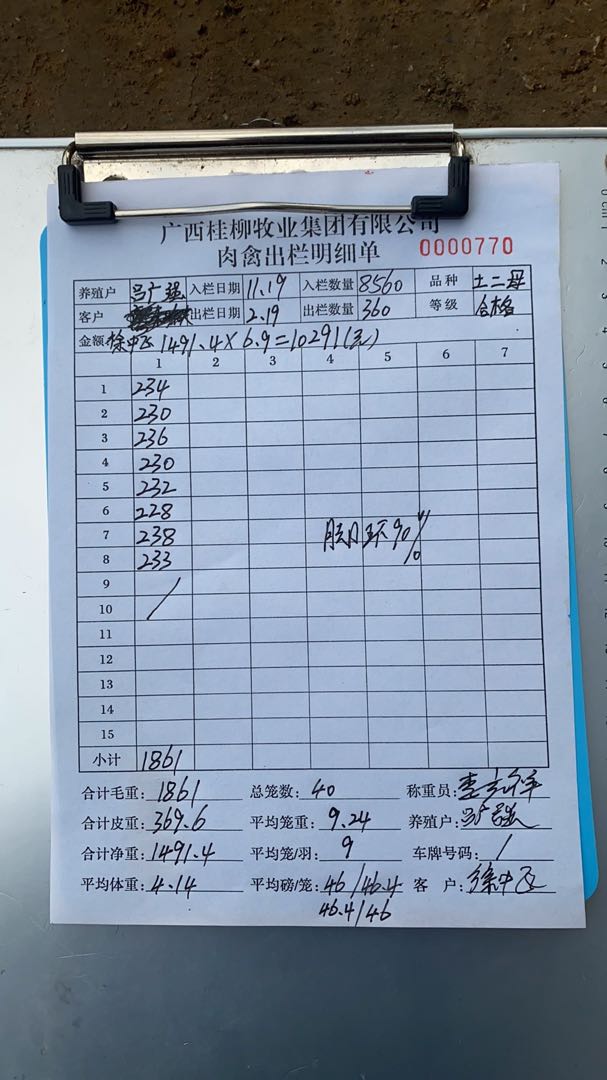 广西桂柳牧业集团有限公司
肉禽出栏明细单 0000770
养殖户 吕广强 入栏日期 11.19 入栏数量 8560 品种 土二母
客户 出栏日期 2.19 出栏数量 360 等级 合格
金额 徐中飞 1491.4×6.9=10291(元)
1 2 3 4 5 6 7
1 234
2 230
3 236
4 230
5 232
6 228
7 238 90%
8 233
9
10
11
12
13
14
15
小计 1861
合计毛重: 1861 总笼数: 40 称重员:
合计皮重: 369.6 平均笼重: 9.24 养殖户: 吕广强
合计净重: 1491.4 平均笼/羽: 9 车牌号码: /
平均体重: 4.14 平均磅/笼: 46/46.4 客 户: 徐中飞
46.4/46